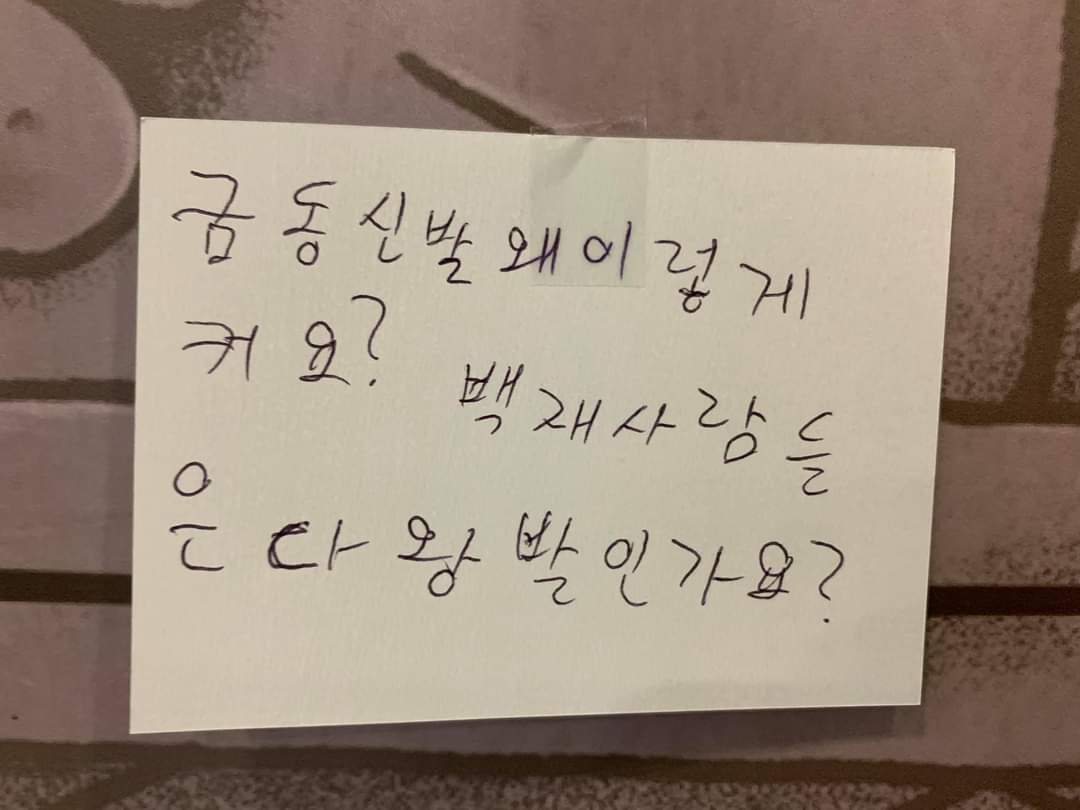 금동신발 왜 이렇게
커요? 백재사람들
은 다 왕발인가요?